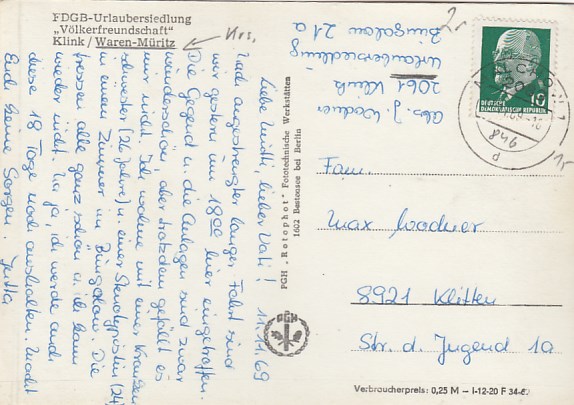 FDGB-Urlaubersiedlung
„Völkerfreundschaft"
Klink / Waren-Müritz
Krs.
Liebe Mutti, lieber Vati! 11.11.69
Nach angestrengter langer Fahrt sind
wir gestern um 18.00 hier eingetroffen.
Die Gegend u. die Anlagen sind zwar
wunderschön, aber trotzdem gefällt es
mir nicht. Ich wohne mit einer Kranken-
schwester (26 Jahre) u. einer Stenotypistin (24)
in einem Zimmer im Bungalow. Die
alle ganz schön u. die
wieder nicht. Na ja, ich werde auch
diese 18 Tage noch aushalten. Macht
Euch keine Sorgen. Jutta
PGH - Rotophot - Fototechnische Werkstätten
1602 Bestensee bei Berlin
PGH
Abs. J. Wodner
2061 Klink
Urlaubersiedlung
Bungalow 21a
2,-
DEUTSCHE
DEMOKRATISCHE REPUBLIK
10
Fam.
Max Wodner
8921 Klitten
Str. d. Jugend 1a
Verbraucherpreis: 0,25 M – I-12-20 F 34-69